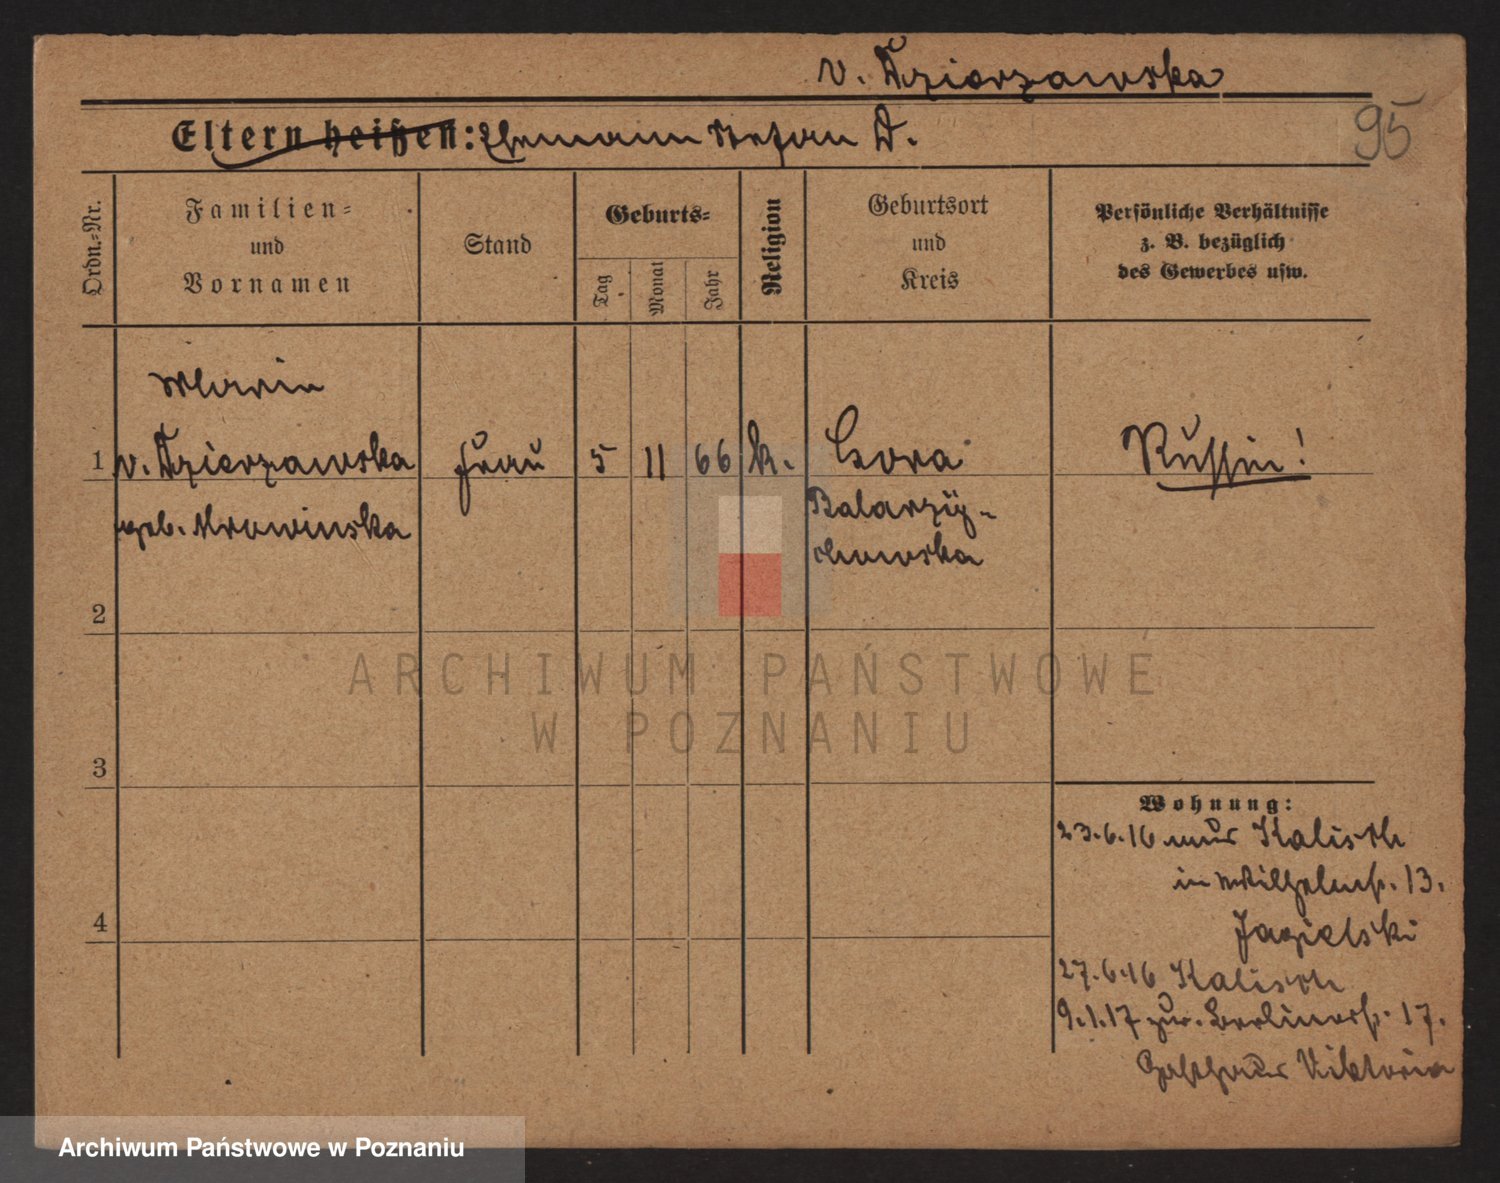 v. Dzierzawska
Eltern heißen: Ehemann Stefan D.
95
Ordn.=Nr.
Familien=
und
Vornamen
Stand
Geburts=
Tag
Monat
Jahr
Religion
Geburtsort
und
Kreis
Persönliche Verhältnisse
z. B. bezüglich
des Gewerbes usw.
Maria
1 v. Dzierzawska Frau 5 11 66 k. Gora Russin!
geb. Mrowinska
2
3
4
Wohnung:
23.6.16 aus Kalisch
in Wilhelmstr. 13.
Jagielski
27.6.16 Kalisch
9.1.17 zur. Berlinerstr. 17.
Gasthaus Viktoria
ARCHIWUM PAŃSTWOWE
W POZNANIU
Archiwum Państwowe w Poznaniu